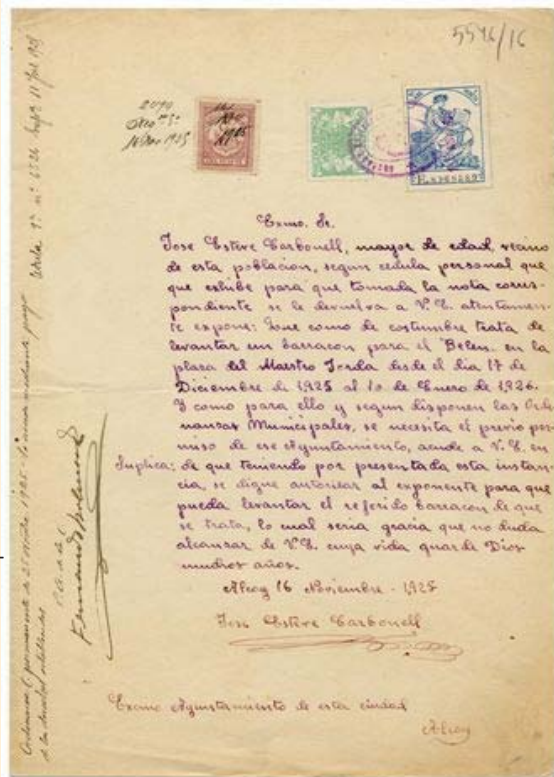 5546/16
16 Nov 1925
1925
Exmo. Sr.
Jose Esteve Carbonell, mayor de edad, vecino
de esta poblacion, segun cedula personal que
que exhibe para que tomada la nota corres-
pondiente se le devuelva a V.E. atentamen-
te expone: Que como de costumbre trata de
levantar un barracon para el Belen en la
plaza del Maestro Jorda desde el dia 17 de
Diciembre de 1925 al 10 de Enero de 1926.
Y como para ello y segun disponen las Orde-
nanzas Municipales, se necesita el previo per-
miso de ese Ayuntamiento, acude a V.E. en
Suplica: de que teniendo por presentada esta instan-
cia, se digne autorizar al exponente para que
pueda levantar el referido barracon de que
se trata, lo cual seria gracia que no duda
alcanzar de V.E. cuya vida guarde Dios
muchos años.
Alcoy 16 Noviembre - 1925
Jose Esteve Carbonell
Excmo Ayuntamiento de esta ciudad
Alcoy